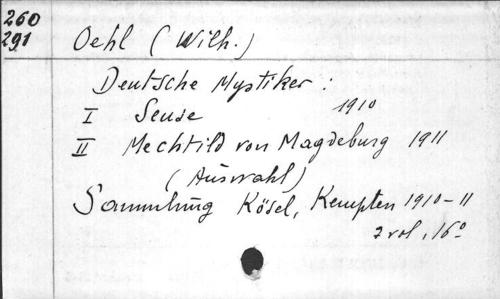 260
291
Oehl (Wilh.)
Deutsche Mystiker:
I Seuse 1910
II Mechtild von Magdeburg 1911
(Auswahl)
Sammlung Kösel, Kempten 1910-11
2 vol, 16°